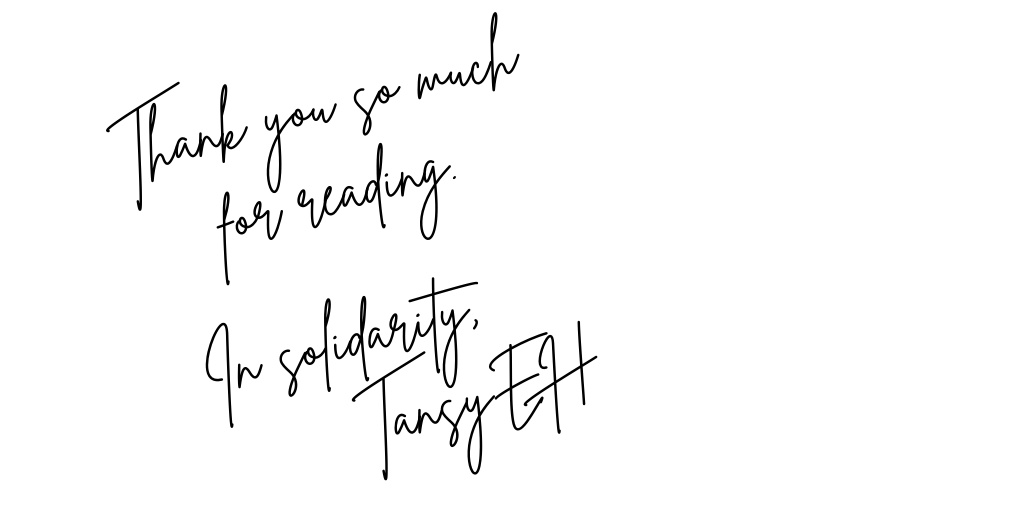 Thank you so much
for reading.
In solidarity,
Tansy EH